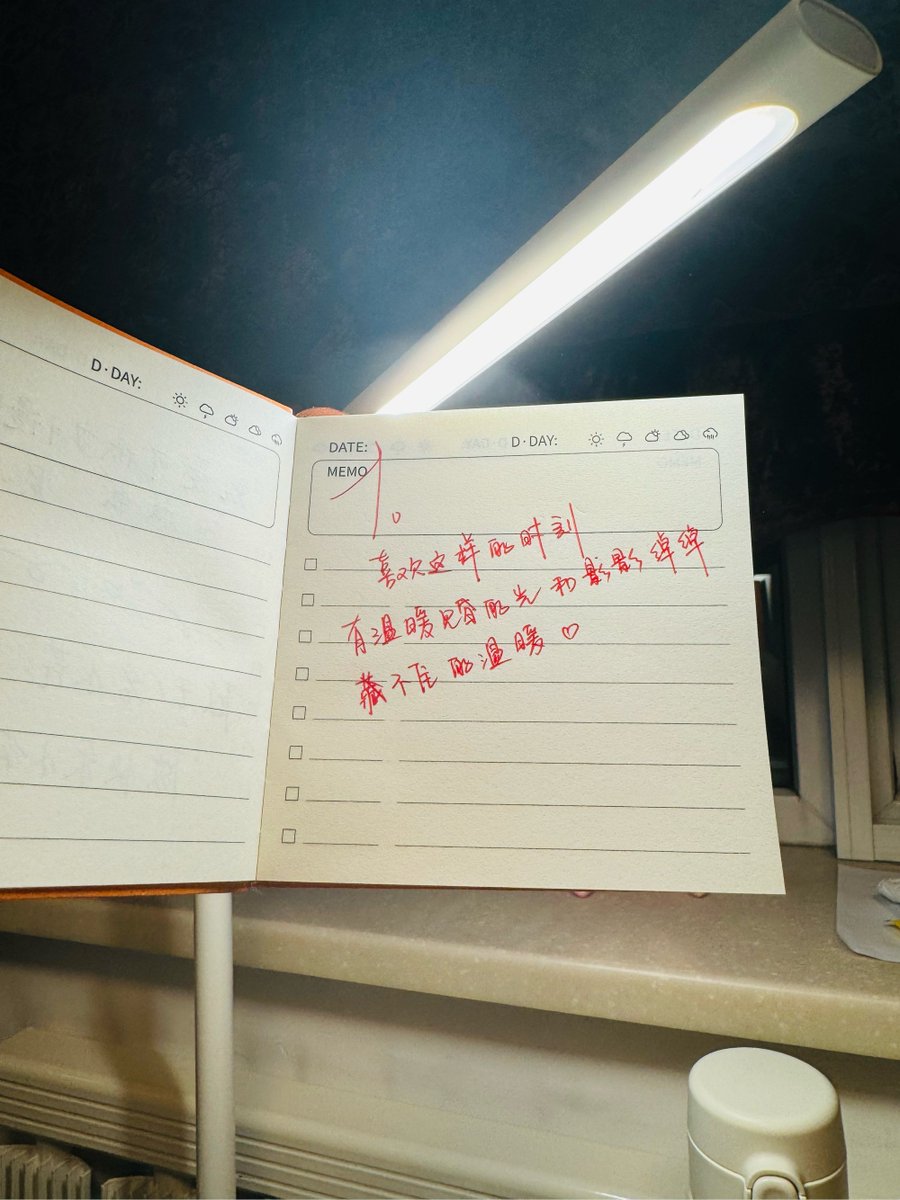 D·DAY:
DATE: D·DAY:
MEMO
喜欢这样的时刻
有温暖昏的光和影影绰绰
藏不住的温暖♡